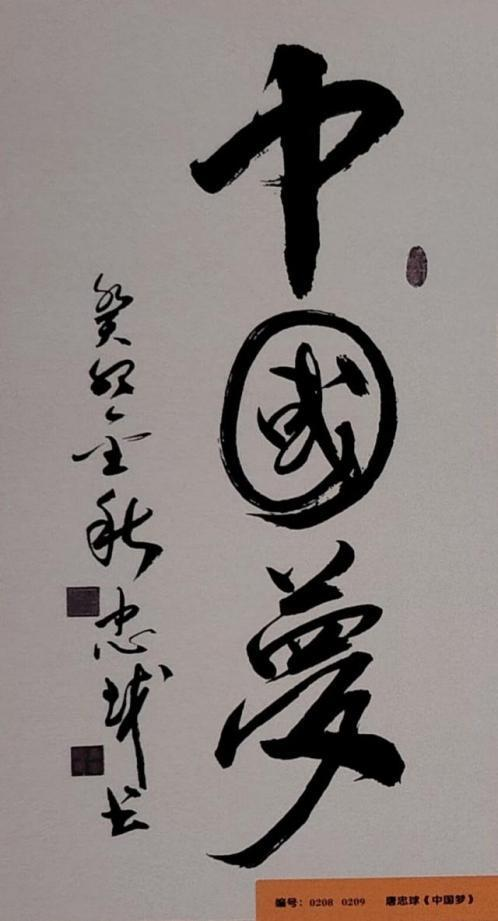 中國夢
癸卯金秋忠球书
编号：0208 0209 唐忠球《中国梦》